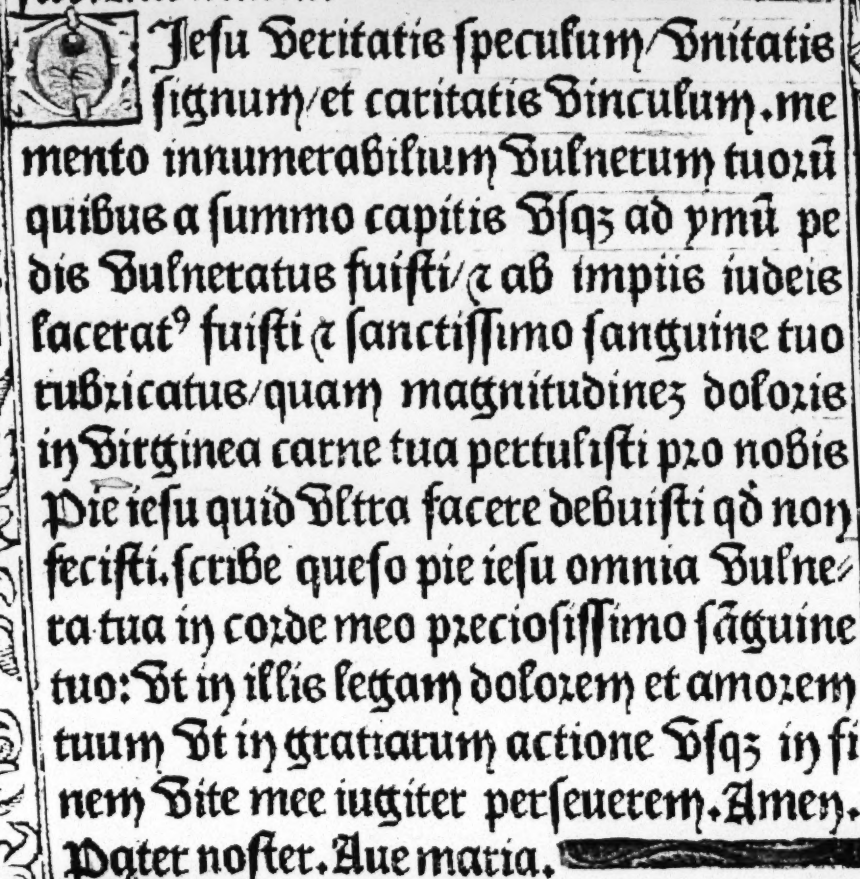 O Jesu veritatis speculum/vnitatis
signum/et caritatis vinculum.me
mento innumerabilium vulnerum tuorū
quibus a summo capitis vsqꝫ ad ymū pe
dis vulneratus fuisti/⁊ ab impiis iudeis
laceratꝰ fuisti ⁊ sanctissimo sanguine tuo
rubricatus/quam magnitudineꝫ doloris
in virginea carne tua pertulisti pro nobis
Pie iesu quid vltra facere debuisti qd̓ non
fecisti.scribe queso pie iesu omnia vulne⸗
ra tua in corde meo preciosissimo sāguine
tuo:vt in illis legam dolorem et amorem
tuum vt in gratiarum actione vsqꝫ in fi
nem vite mee iugiter perseuerem.Amen.
Pater noster.Aue maria.